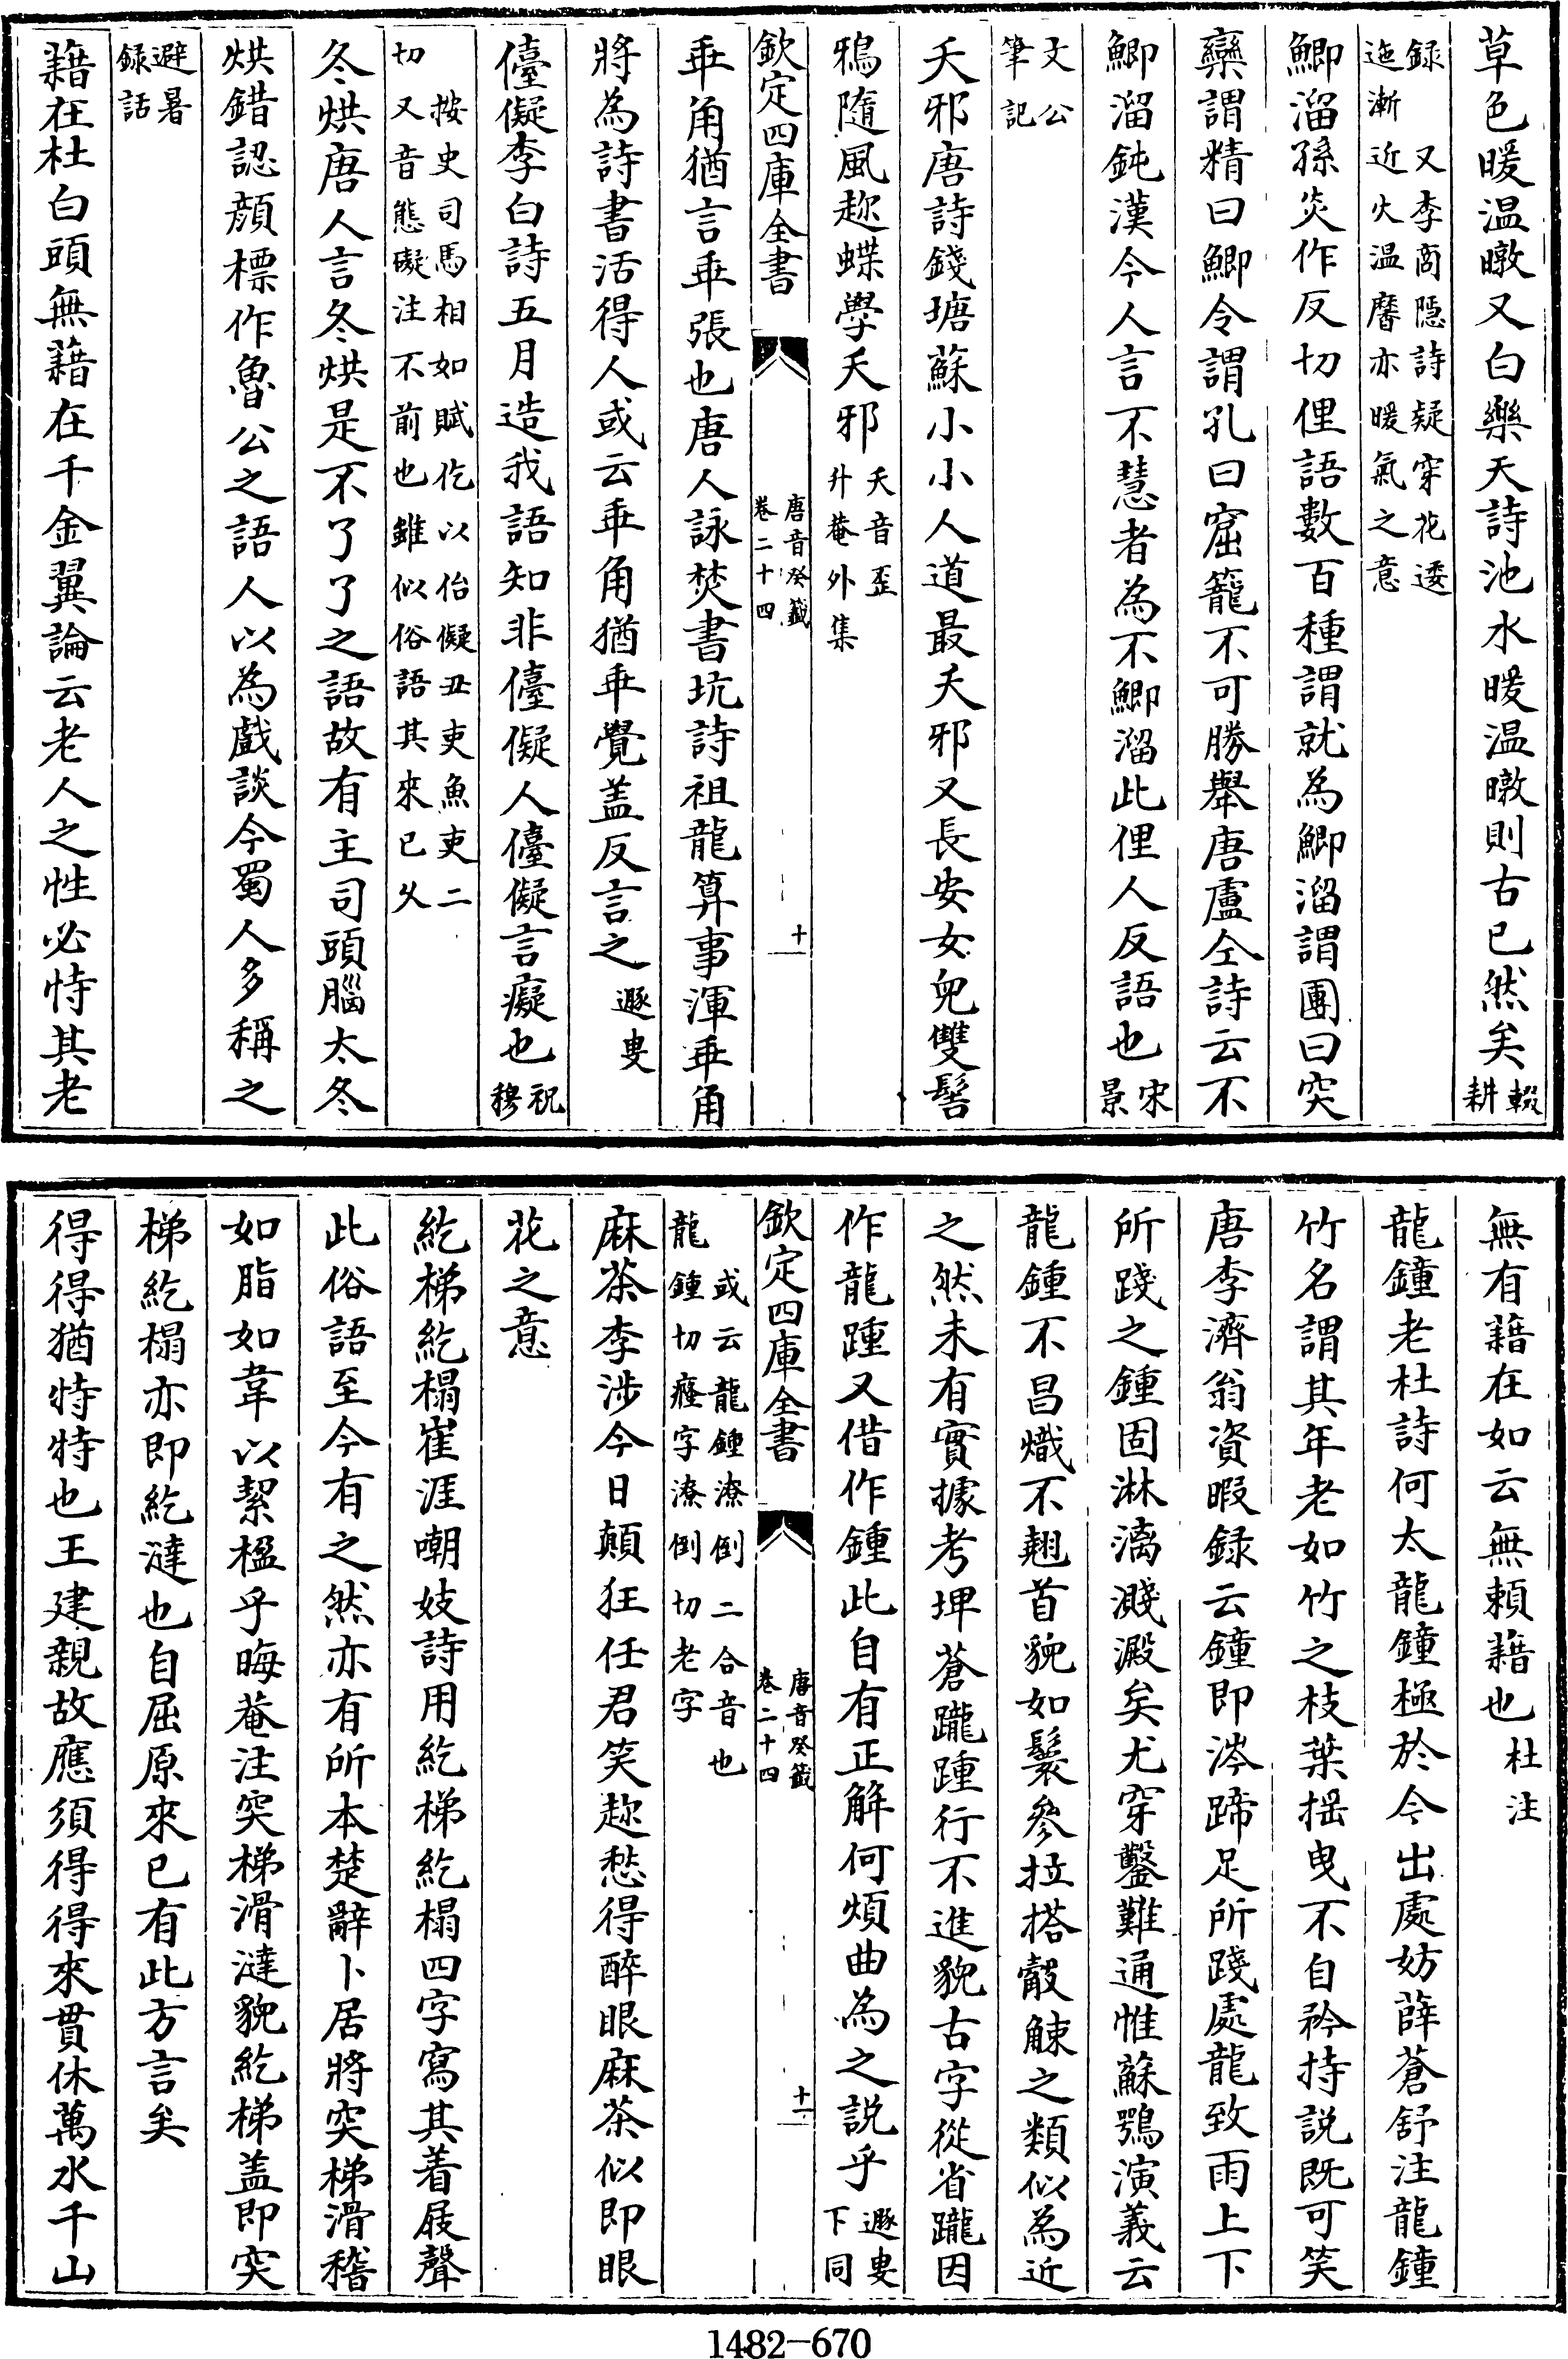 草色暖温暾又白樂天詩池水暖温暾則古已然矣輟耕
録　又李商隱詩疑穿花逶迤漸近火温黁亦暖氣之意
鯽溜孫炎作反切俚語數百種謂就為鯽溜謂團曰突
欒謂精曰鯽令謂孔曰窟籠不可勝舉唐盧仝詩云不
鯽溜鈍漢今人言不慧者為不鯽溜此俚人反語也宋景
文公筆記
夭邪唐詩錢塘蘇小小人道最夭邪又長安女兒雙髻
鴉隨風趂蝶學夭邪夭音歪升菴外集
欽定四庫全書　唐音癸籤卷二十四　十
乖角猶言乖張也唐人詠焚書坑詩祖龍算事渾乖角
將為詩書活得人或云乖角猶乖覺盖反言之遯叟
儓儗李白詩五月造我語知非儓儗人儓儗言癡也祝穆
按史司馬相如賦仡以佁儗丑吏魚吏二切又音態礙注不前也雖似俗語其來已久
冬烘唐人言冬烘是不了了之語故有主司頭腦太冬
烘錯認顔標作魯公之語人以為戲談今蜀人多稱之
避暑録話
藉在杜白頭無藉在千金翼論云老人之性必恃其老
無有藉在如云無賴藉也杜注
龍鐘老杜詩何太龍鐘極於今出處妨薛蒼舒注龍鐘
竹名謂其年老如竹之枝葉揺曳不自矜持説既可笑
唐李濟翁資暇録云鐘即涔蹄足所踐處龍致雨上下
所踐之鍾固淋漓濺澱矣尤穿鑿難通惟蘇鶚演義云
龍鍾不昌熾不翹首貌如鬖㲯拉搭觳觫之類似為近
之然未有實據考埤蒼躘踵行不進貌古字從省躘因
作龍踵又借作鍾此自有正解何煩曲為之説乎遯叟下同
欽定四庫全書　唐音癸籤卷二十四　十一
或云龍鍾潦倒二合音也龍鍾切癃字潦倒切老字
麻茶李涉今日顛狂任君笑趂愁得醉眼麻茶似即眼
花之意
紇梯紇榻崔涯嘲妓詩用紇梯紇榻四字寫其着屐聲
此俗語至今有之然亦有所本楚辭卜居將突梯滑稽
如脂如韋以絜楹乎晦菴注突梯滑澾貌紇梯盖即突
梯紇榻亦即紇澾也自屈原來已有此方言矣
得得猶特特也王建親故應須得得來貫休萬水千山
1482-670